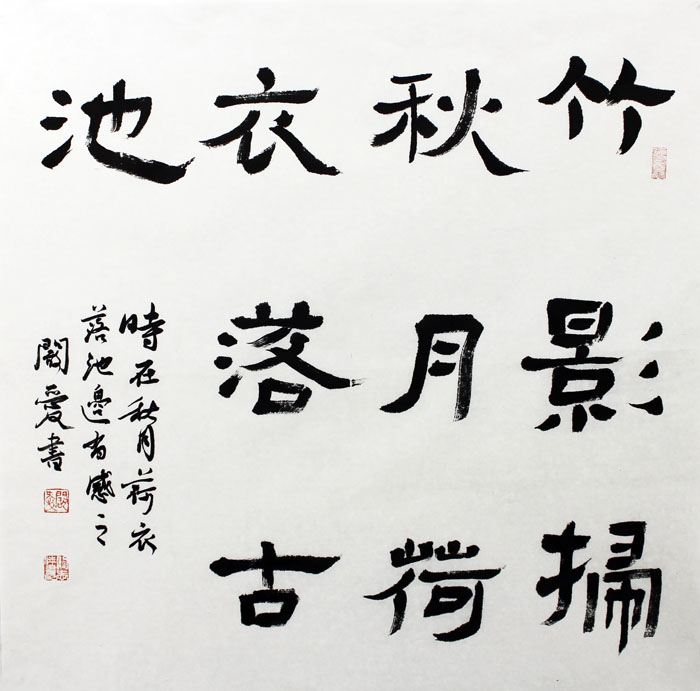 竹影掃
秋月荷
衣落古
池
時在秋月荷衣
落池邊有感之
愛書